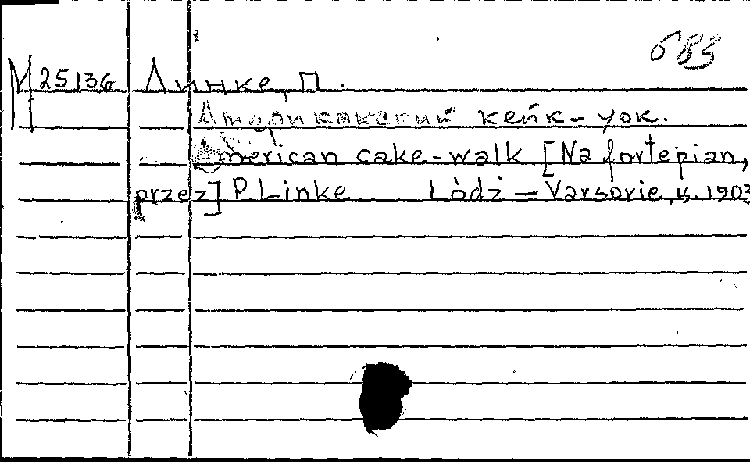 683
М 25136 Линке, П.
Американский кейк-уок.
American cake-walk [Na fortepian,
przez] P. Linke Lòdź — Varsovie, 1903